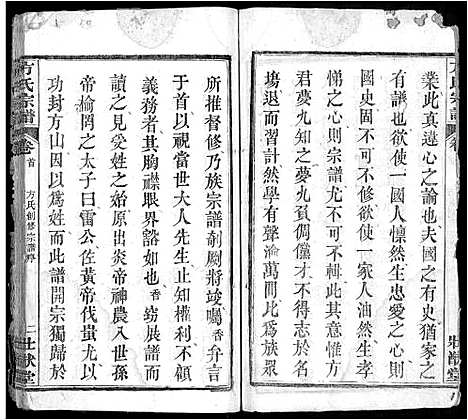 業此真違心之論也夫國之有史猶家之
有譜也欲使一國人懔然生忠愛之心則
國史不可無欲使一家人油然生孝
悌之心則宗譜尤不可不亟其意惟方
君夢九知之夢九負倜儻才不得志於棘
場退而習計然學有聲滄萬間此為族
所推督修乃族宗譜剞劂將竣囑香弁言
並求所以視當世大人先生止知權利不知
義務者其胸襟眼界豁如也香窃展譜而
讀之見得姓之始原出炎帝神農八世
帝榆罔之太子曰雷公佐黃帝伐蚩尤以
功封方山因以為姓而此譜開宗獨歸於
方氏宗譜
卷首
方氏創修宗譜序
二
壯猷堂
方氏宗譜
壯猷堂